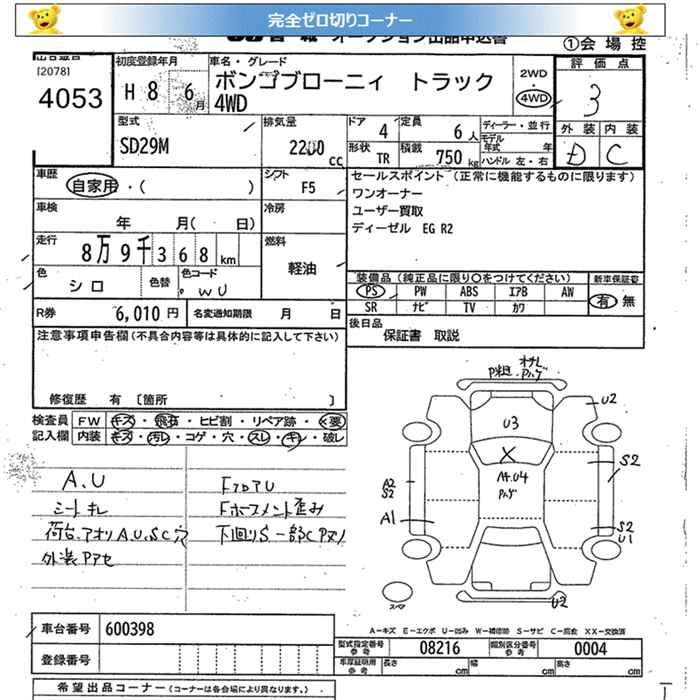 完全ゼロ切りコーナー
オークション出品申込書
①会場控
[2078]
4053
初度登録年月
H8 6月
車名・グレード
ボンゴブローニィ トラック
4WD
2WD
・
4WD
評価点
3
外装 内装
D C
型式
SD29M
排気量
2200 cc
ドア 4
形状 TR
定員 6人
積載 750kg
ディーラー・並行
モデル年式 年
ハンドル 左・右
車歴
自家用・( )
シフト
F5
車検
年 月( 日)
冷房
走行
8万9千368km
燃料
軽油
色
シロ
色替
色コード
WU
R券 6,010円
名変通知期限 月 日
セールスポイント (正常に機能するものに限ります)
ワンオーナー
ユーザー買取
ディーゼル EG R2
装備品 (純正品に限り○をつけてください)
新車保証書
PS PW ABS エアB AW
SR ナビ TV カワ
有・無
後日品
保証書 取説
注意事項申告欄 (不具合内容等は具体的に記入して下さい)
修復歴 有 [箇所 ]
検査員記入欄
FW キズ・飛石・ヒビ割・リペア跡・×要
内装 キズ・汚レ・コゲ・穴・スレ・キレ・破レ
A.U
シートキレ
荷台、アオリA.U.S.C穴
外装Pアセ
FフロアU
Fホースメント歪み
下廻りS 一部CPヌリ
Pハゲ
U2
U3
X
A4.04
Pハゲ
S2
A2
S2
A1
S2
U1
U2
スペア
A-キズ E-エクボ U-凹み W-補修跡 S-サビ C-腐食 XX-交換済
車台番号 600398
登録番号
型式指定番号 参考 08216
類別区分番号 参考 0004
車庫証明用 参考 長さ cm 幅 cm 高さ cm
希望出品コーナー (コーナーは各会場により異なります。)